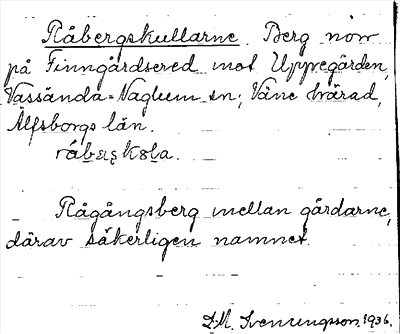 Råbergskullarne. Berg norr
på Finngärdsered mot Uppegården,
Vassända-Naglum sn; Väne härad,
Älfsborgs län.
Rågångsberg mellan gårdarne,
därav säkerligen namnet.
D.M. 1936.